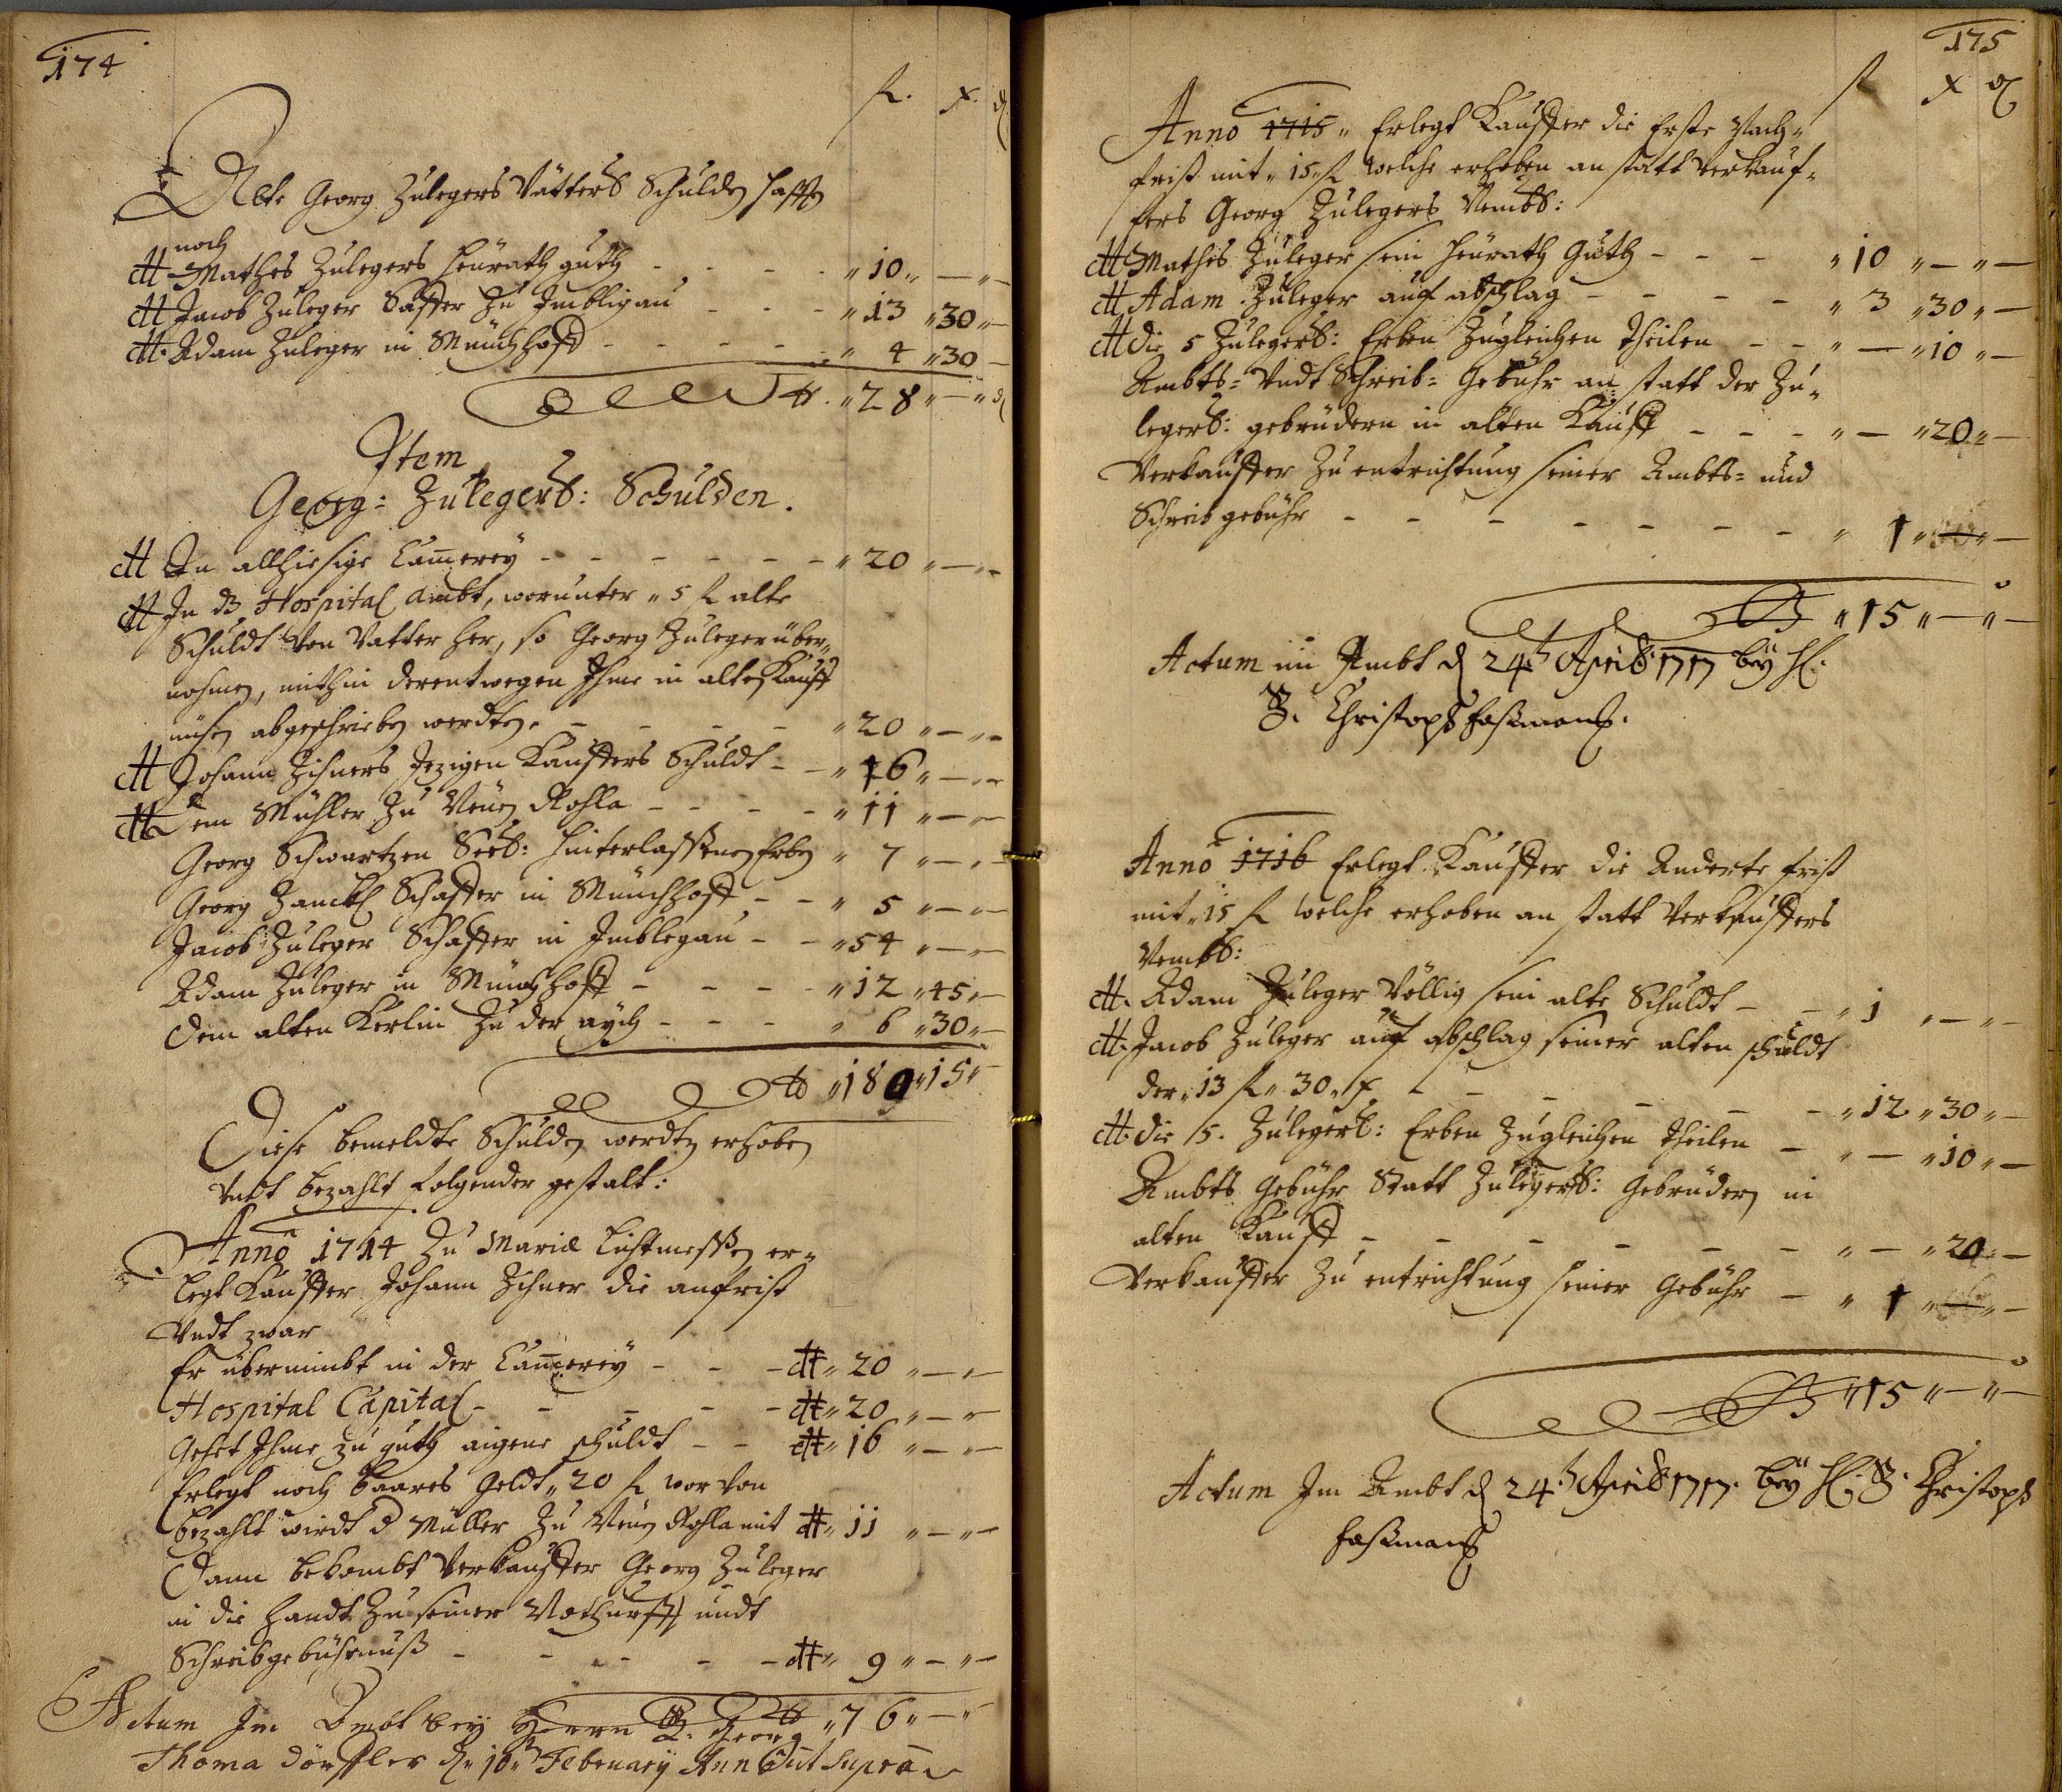 174
fl. x. d
Alte Georg Zulegers Vatters Schulden hafften
noch
Mathes Zulegers heürath guth - - - - " 10 " — " —
Jacob Zuleger Saffer Zu Imbligau - - - " 13 " 30 " —
Adam Zuleger in Münchhoff - - - - - " 4 " 30 —
" 28 " — " —
Item
Georg: Zulegers: Schulden.
In allhiesige Cam̅erey - - - - - - " 20 " — " —
In dz Hospital ambt, worunter " 5 fl alte
Schuldt Von Vatter her, so Georg Zuleger über-
nohmen, mithin derentwegen Ihme in alten Kauff
müsen abgeschrieben werdten. - - - - - " 20 " — " —
Johann Zihners Jezigen Kauffers Schuldt - - " 16 " — " —
Dem Mühler Zu Neüen Rohla - - - - " 11 " — " —
Georg Schwartzen Seel: hinterlassenen Erben " 7 " — " —
Georg Zanckl Schaffer in Münchhoff - - " 5 " — " —
Jacob Zuleger Schaffer in Imblegau - - " 54 " — " —
Adam Zuleger in Münchhoff - - - - " 12 " 45 " —
Dem alten Kerlin Zu der aÿch - - - " 6 " 30 " —
" 189 " 15 " —
Diese bemeldte Schulden werdten erhoben
Undt bezahlt folgender gestalt:
Anno 1714 Zu Mariæ Lichtmessen er-
legt Kauffer Johann Zihner die anfrist
Undt zwar
Er übernimbt in der Cam̅ereÿ - - - " 20 " — " —
Hospital Capital - - - - - " 20 " — " —
Gehet Ihme zu guth aigene schuldt - - " 16 " — " —
Erlegt noch baares Geldt " 20 fl wor Von
bezahlt wirdt d Müller Zu Neüen Rohla mit " 11 " — " —
Dann bekombt Verkauffer Georg Zuleger
in die handt Zu seiner Nothurfft undt
Schreibgebührnuß - - - - - " 9 " — " —
" 76 " — "
Actum Im Ambt beÿ Herrn B. Georg
Thoma Dörffler d. 10 Februarÿ Anno ut supra
175
fl x d
Anno 1715 " Erlegt Kauffer die Erste Nach-
frist mit " 15 " fl welche erhoben an statt Verkauf-
fers Georg Zulegers Nembl:
Mathes Zuleger sein heürath Guth - - - " 10 " — " —
Adam Zuleger auf abschlag - - - - " 3 " 30 " —
die 5 Zulegers: Erben Zugleichen theilen - - " — " 10 " —
Ambts= Undt Schreib= Gebühr an statt der Zu-
legers: gebrüdern in alten Kauff - - - " — " 20 " —
Verkauffer Zu entrichtung seiner Ambts= und
Schreib gebühr - - - - - - - " 1 " — " —
" 15 " — " —
Actum im Ambt d 24t Aprilis 1717 beÿ H:
B. Christoph Faßmann.
Anno 1716 Erlegt Kauffer die Anderte frist
mit " 15 fl welche erhoben an statt Verkauffers
Nembl:
Adam Zuleger Völlig sein alte Schuldt - - " 1 " — " —
Jacob Zuleger auf abschlag seiner alten schuldt
der " 13 fl " 30 " x - - - - - - " 12 " 30 " —
die 5. Zulegers: Erben Zugleichen theilen - " — " 10 " —
Ambts Gebühr Statt Zulegers: Gebrüdern in
alten Kauff - - - - - - " — " 20 " —
Verkauffer Zu entrichtung seiner Gebühr - " 1 " — " —
" 15 " — " —
Actum Im Ambt d 24t Aprilis 1717. beÿ H: B. Christoph
Faßmann